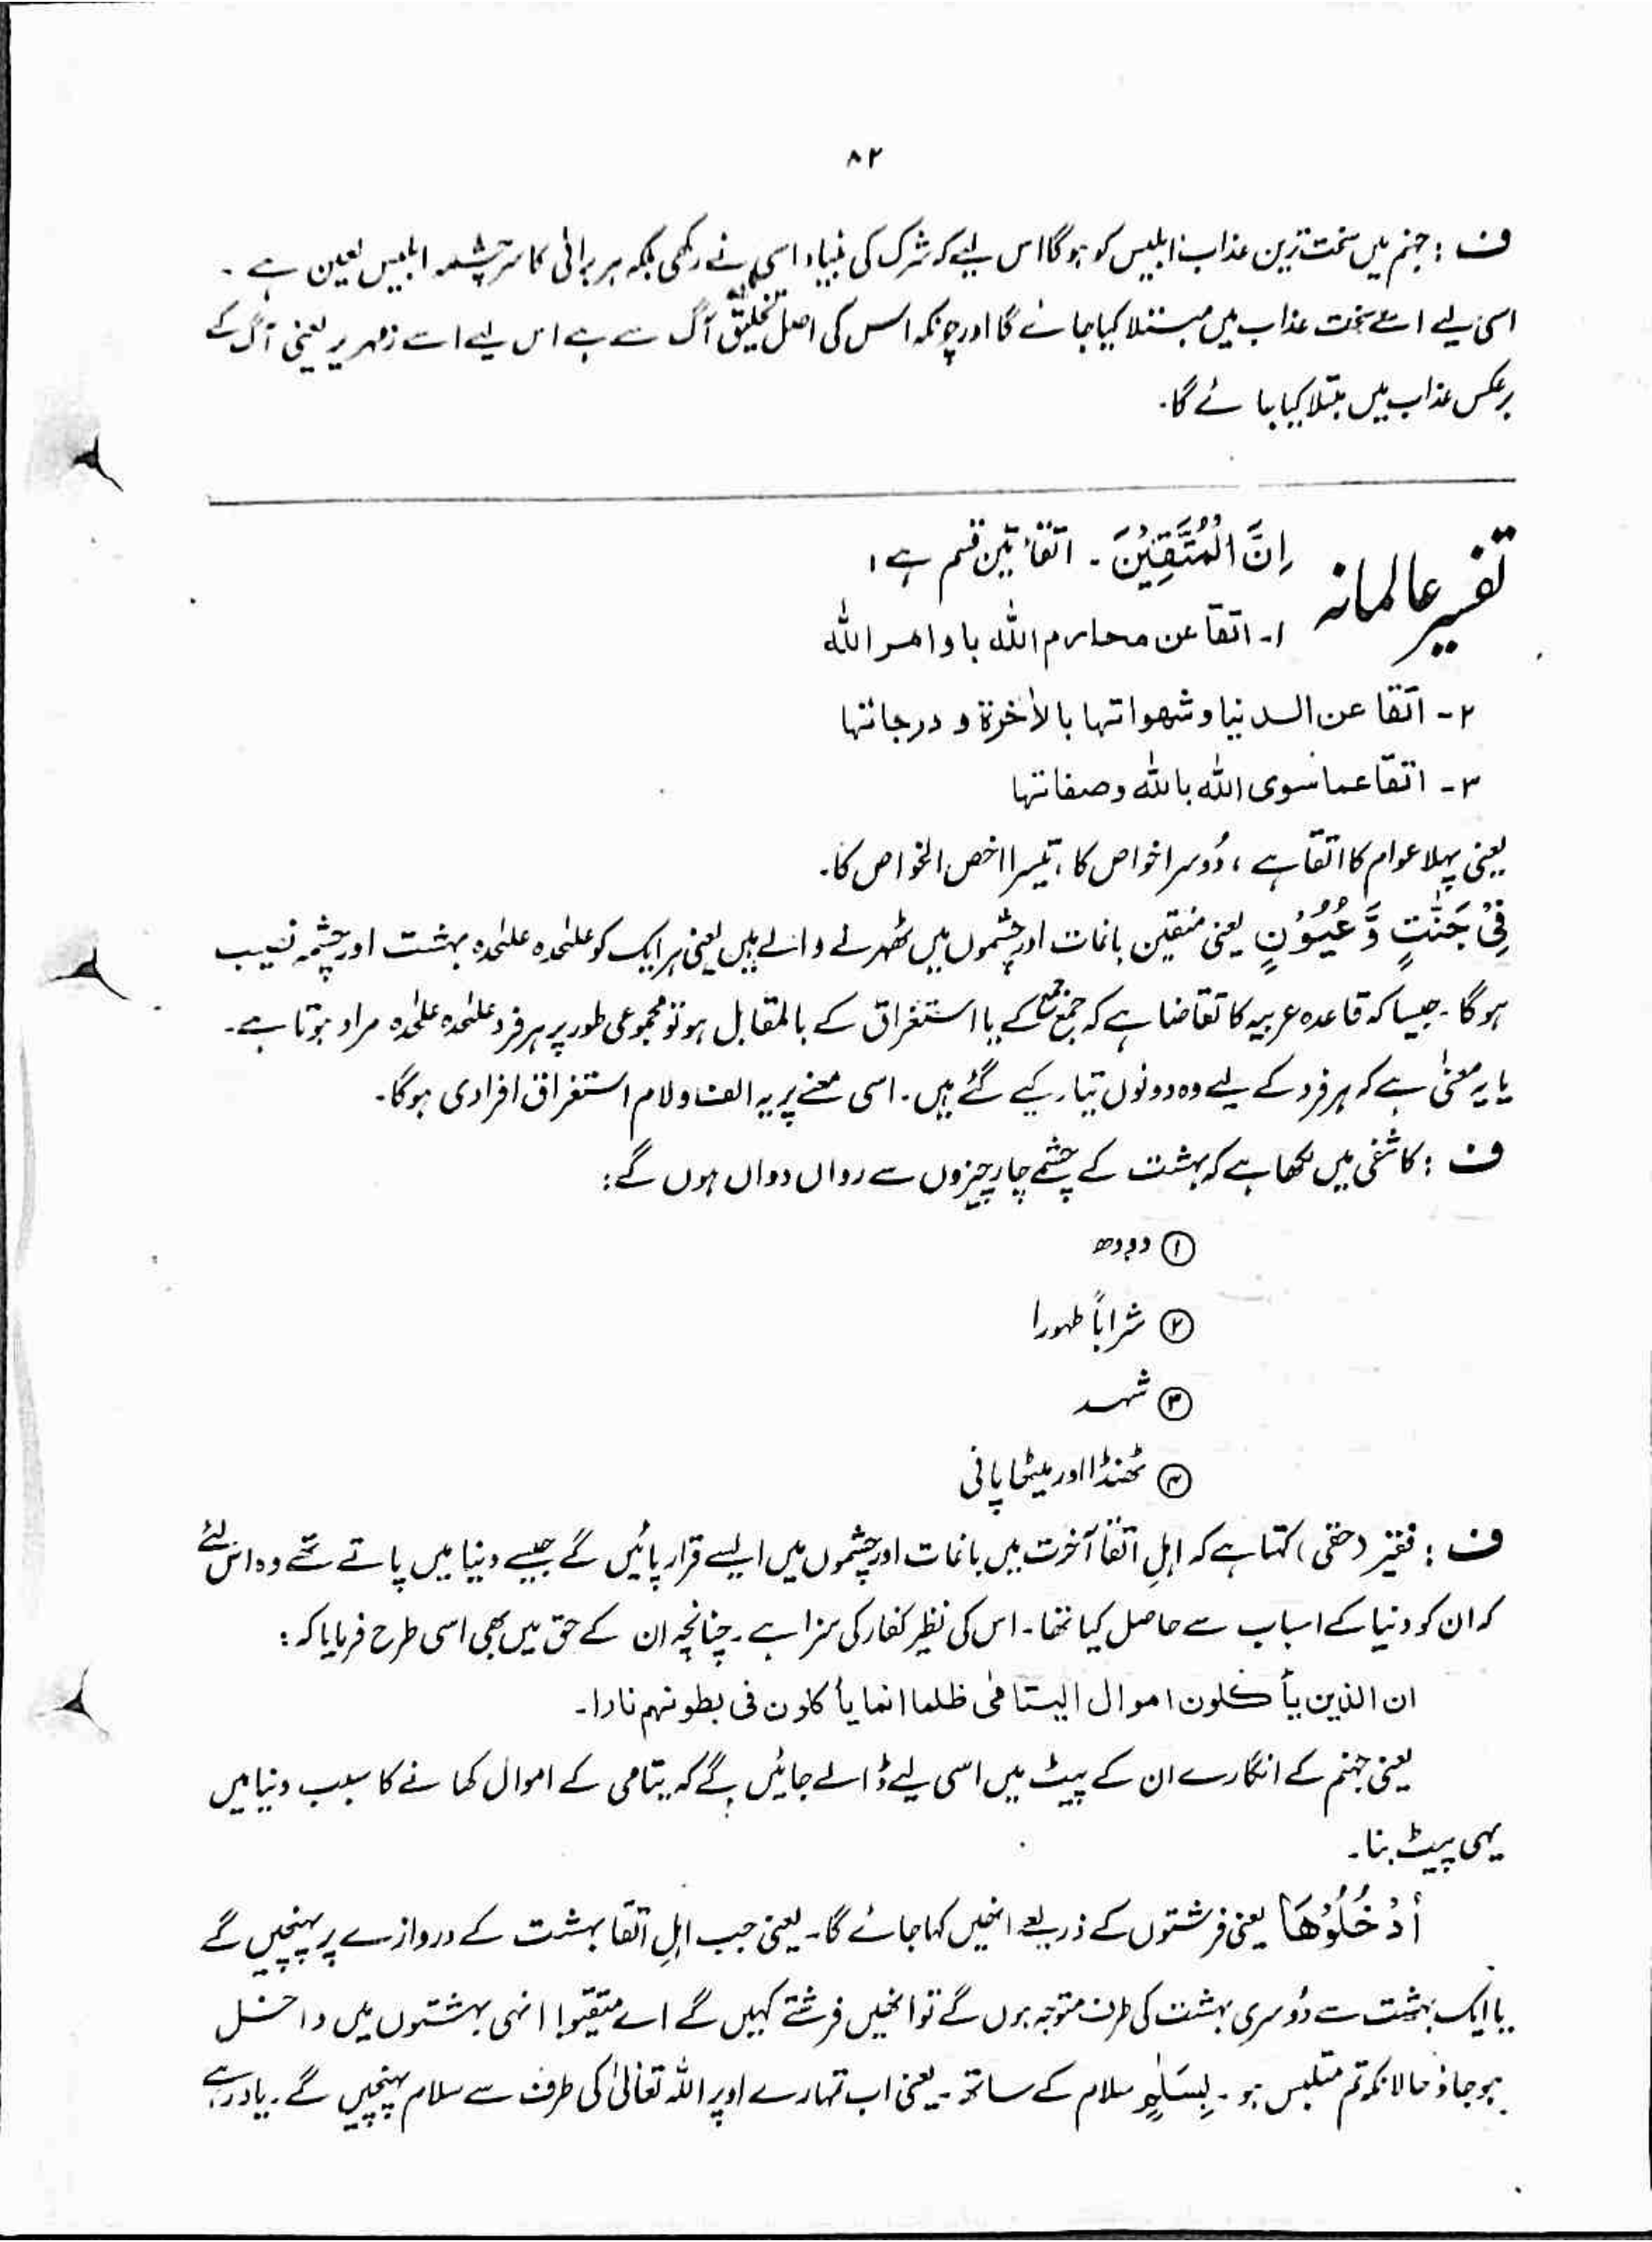 ۸۲
ف : جہنم میں سخت ترین عذاب ابلیس کو ہوگا اس لیے کہ شرک کی بنیاد اسی نے رکھی بلکہ ہر برائی کا سرچشمہ ابلیس لعین ہے ۔
اسی لیے اسے سخت عذاب میں مبتلا کیا جائے گا اور چونکہ اس کی اصل تخلیق آگ سے ہے اس لیے اسے زمہریر یعنی آگ کے
برعکس عذاب میں مبتلا کیا جائے گا۔
تفسیر عالمانہ
اِنَّ الْمُتَّقِيْنَ ۔ اتقاء تین قسم ہے :
۱۔ اتقا عن محارم اللہ باوامر اللہ
۲ - اتقا عن الدنیا و شهواتها بالاٰخرة و درجاتها
۳ - اتقا عما سوی اللہ باللہ وصفاتها
یعنی پہلا عوام کا اتقا ہے ، دُوسرا خواص کا ، تیسرا اخص الخواص کا۔
فِیْ جَنّٰتٍ وَّ عُیُوْنٍ یعنی متقین باغات اور چشموں میں ٹھہرنے والے ہیں یعنی ہر ایک کو علٰحدہ علٰحدہ بہشت اور چشمہ نصیب
ہوگا ۔ جیسا کہ قاعدہ عربیہ کا تقاضا ہے کہ جمع جمع کے یا استغراق کے بالمقابل ہو تو مجموعی طور پر ہر فرد علٰحدہ علٰحدہ مراد ہوتا ہے۔
یا یہ معنیٰ ہے کہ ہر فرد کے لیے وہ دونوں تیار کیے گئے ہیں ۔ اسی معنے پر یہ الف و لام استغراق افرادی ہوگا۔
ف : کاشفی میں لکھا ہے کہ بہشت کے چشمے چار چیزوں سے رواں دواں ہوں گے :
① دودھ
② شراباً طہورا
③ شہد
④ ٹھنڈا اور میٹھا پانی
ف : فقیر (حقی) کہتا ہے کہ اہلِ اتقا آخرت میں باغات اور چشموں میں ایسے قرار پائیں گے جیسے دنیا میں پاتے تھے وہ اس لئے
کہ ان کو دنیا کے اسباب سے حاصل کیا تھا ۔ اس کی نظیر کفار کی سزا ہے ۔ چنانچہ ان کے حق میں بھی اسی طرح فرمایا کہ :
ان الذین یأکلون اموال الیتامٰی ظلما انما یأکلون فی بطونہم نارا ۔
یعنی جہنم کے انگارے ان کے پیٹ میں اسی لیے ڈالے جائیں گے کہ یتامی کے اموال کھانے کا سبب دنیا میں
یہی پیٹ بنا ۔
اُدْخُلُوْهَا یعنی فرشتوں کے ذریعے انھیں کہا جائے گا ۔ یعنی جب اہلِ اتقا بہشت کے دروازے پر پہنچیں گے
یا ایک بہشت سے دُوسری بہشت کی طرف متوجہ ہوں گے تو انھیں فرشتے کہیں گے اے متقیو! انہی بہشتوں میں داخل
ہو جاؤ حالانکہ تم متلبس ہو ۔ بِسَلٰمٍ سلام کے ساتھ ۔ یعنی اب تمہارے اوپر اللہ تعالیٰ کی طرف سے سلام پہنچیں گے ۔ یاد رہے